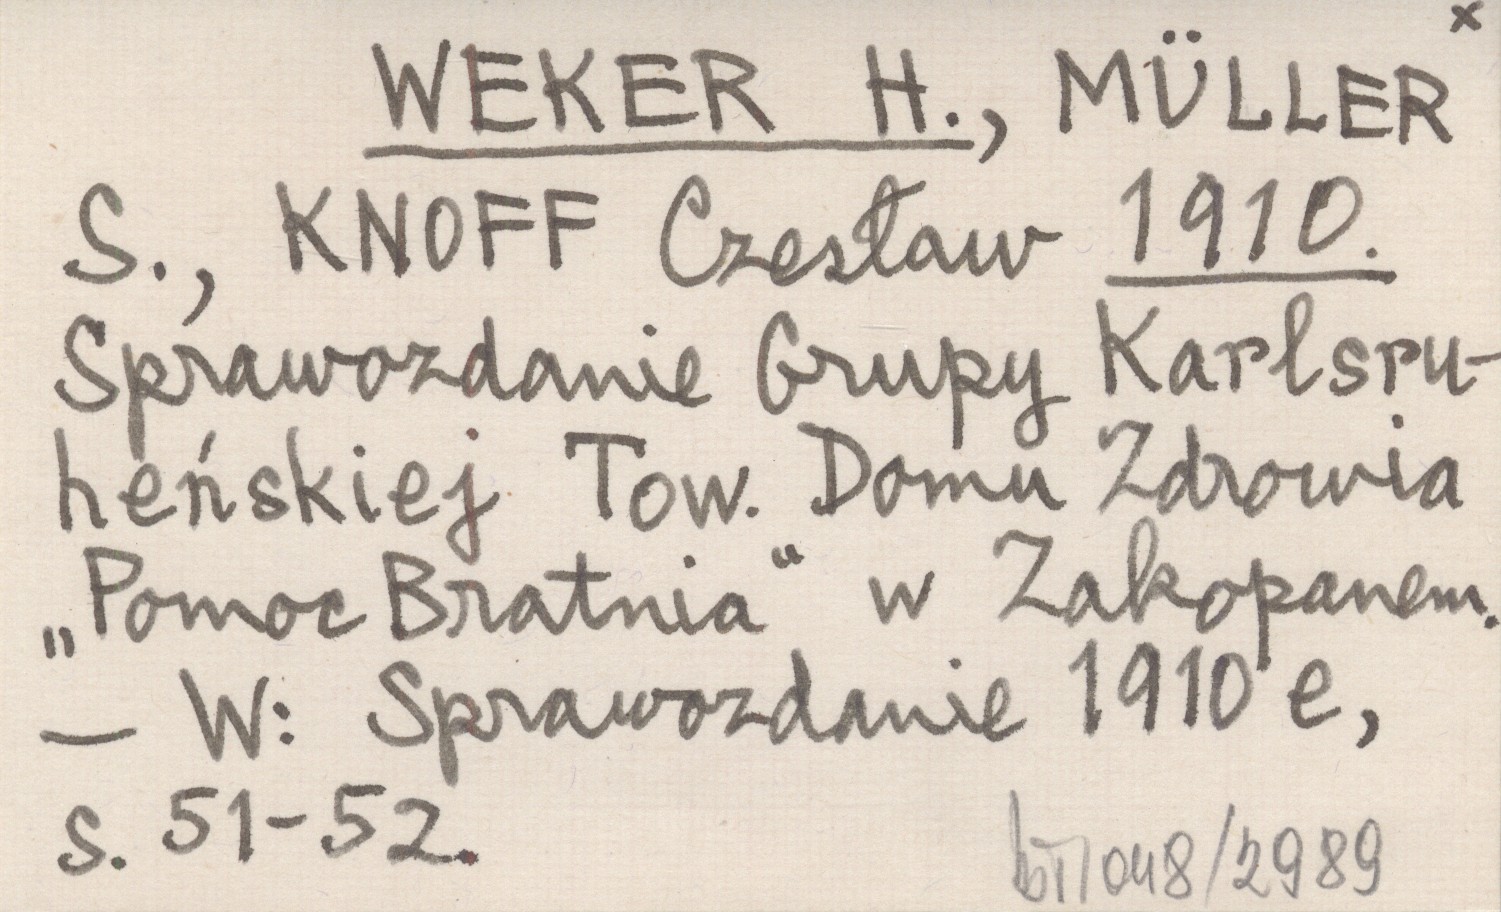 x
WEKER H., MÜLLER
S., KNOFF Czesław 1910.
Sprawozdanie Grupy Karlsru-
heńskiej Tow. Domu Zdrowia
„Pomoc Bratnia“ w Zakopanem.
— W: Sprawozdanie 1910 e,
s. 51-52.
048/2989